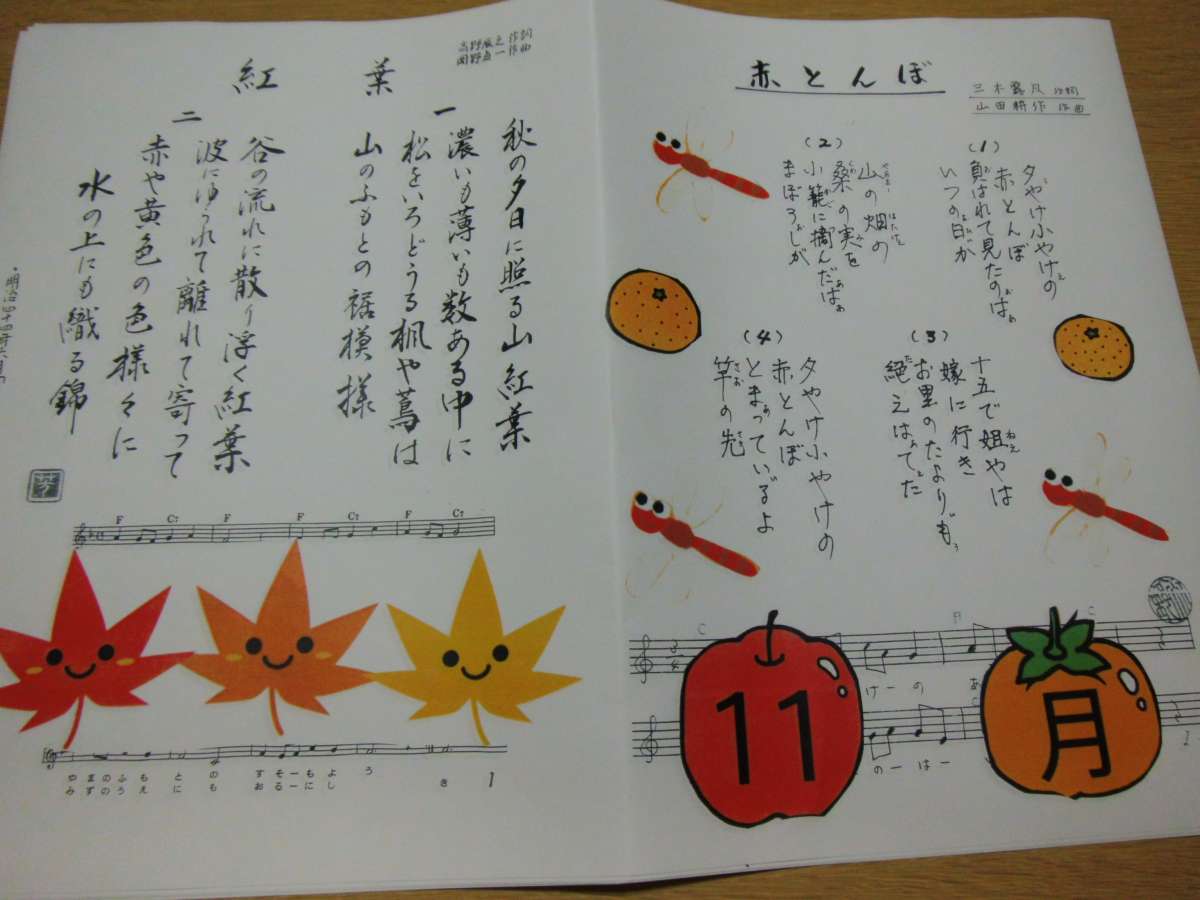 赤とんぼ
三木露風 作詞
山田耕作 作曲
(1)
夕やけ小やけの
赤とんぼ
負はれて見たのは
いつの日か
(2)
山の畑の
桑の実を
小籠に摘んだは
まぼろしか
(3)
十五で姐やは
嫁に行き
お里のたよりも
絶えはてた
(4)
夕やけ小やけの
赤とんぼ
とまっているよ
竿の先
C F C
3/4
けーの あ
C
のーはー
11月
紅葉
高野辰之 作詞
岡野貞一 作曲
一
秋の夕日に照る山紅葉
濃いも薄いも数ある中に
松をいろどうる楓や蔦は
山のふもとの裾模様
二
谷の流れに散り浮く紅葉
波にゆられて離れて寄って
赤や黄色の色様々に
水の上にも織る錦
・明治四十四年六月
芳
F C7 F F C7 F C7
やまのふもとの すそーもよう
みずのうえにも おるーにしき